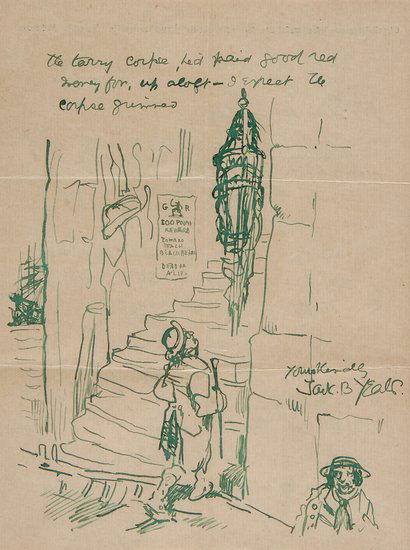 the tarry corpse, he'd paid good red
money for, up aloft – I expect the
corpse grinned
G R
100 POUND
REWARD
EDWARD
TEACH
BLACKBEARD
DEAD OR
ALIVE
Yours kindly
Jack. B Yeats.